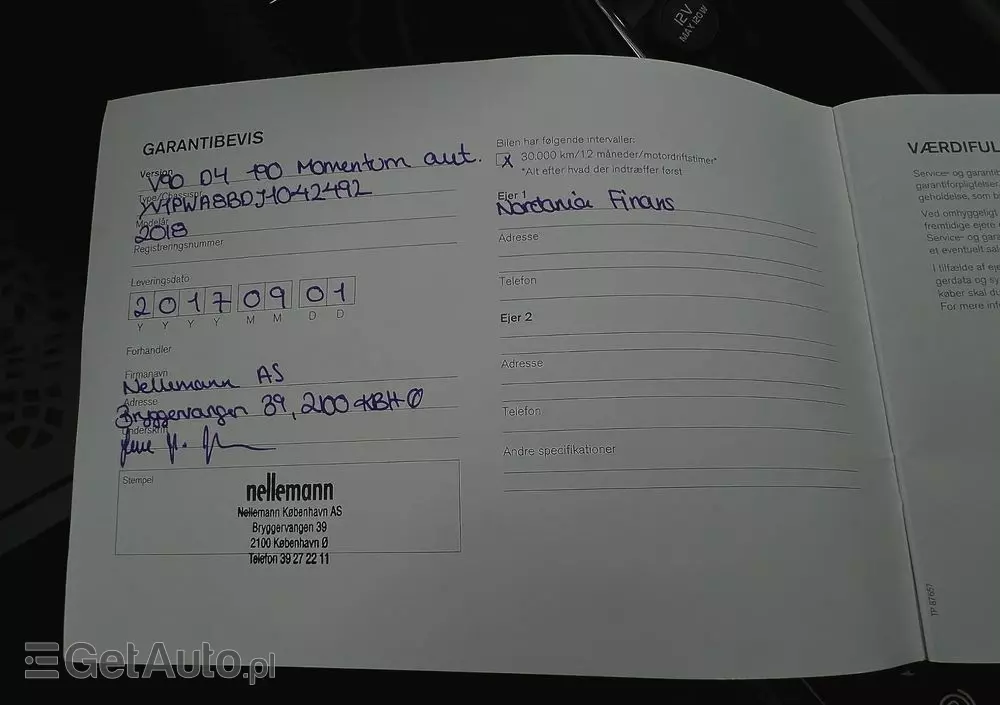 12V
MAX 120W
GARANTIBEVIS
Version
V90 D4 190 Momentum aut.
Type/Chassisnr.
YV1PWA8BDJ1042492
Modelår
2018
Registreringsnummer
Leveringsdato
2 0 1 7 0 9 0 1
Y Y Y Y M M D D
Forhandler
Firmanavn
Nellemann AS
Adresse
Bryggervangen 39, 2100 KBH Ø
Underskrift
Stempel
nellemann
Nellemann København AS
Bryggervangen 39
2100 København Ø
Telefon 39 27 22 11
Bilen har følgende intervaller:
X 30.000 km/12 måneder/motordriftstimer*
*Alt efter hvad der indtræffer først
Ejer 1
Nordania Finans
Adresse
Telefon
Ejer 2
Adresse
Telefon
Andre specifikationer
VÆRDIFUL
Service- og garantib
garantiforpligtelser
geholdelse, som b
Ved omhyggeligt
fremtidige ejere
Service- og gara
et eventuelt sal
I tilfælde af eje
gerdata og sy
køber skal du
For mere inf
TP 87657
GetAuto.pl